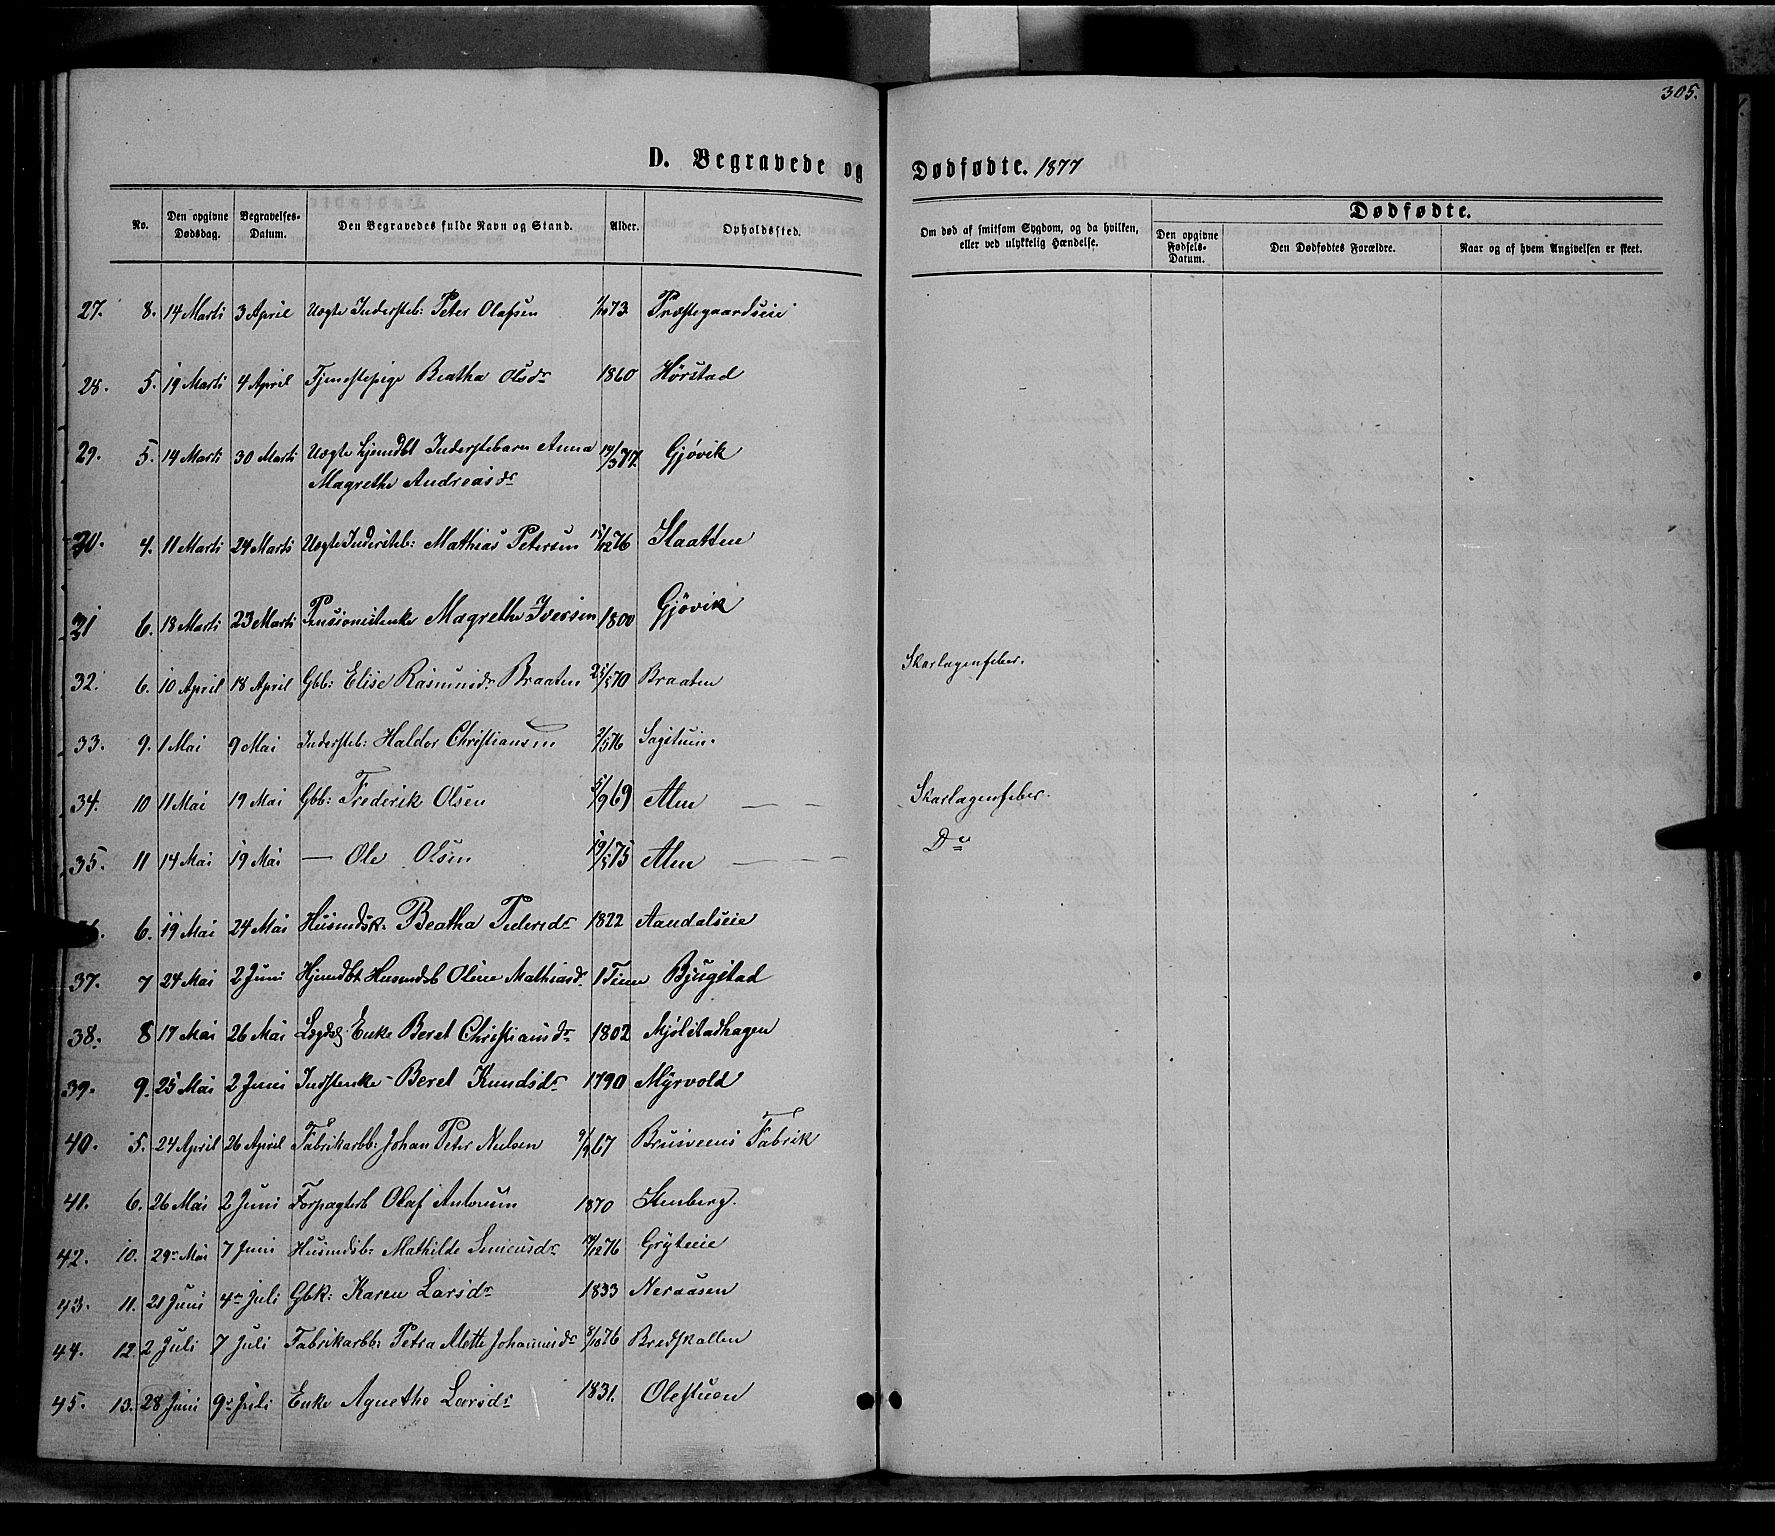 305.
D. Begravede og Dødfødte. 1877
No.
Den opgivne Dødsdag.
Begravelses-Datum.
Den Begravedes fulde Navn og Stand.
Alder.
Opholdssted.
Om død af smitsom Sygdom, og da hvilken, eller ved ulykkelig Hændelse.
Dødfødte.
Den opgivne Fødsels-Datum.
Den Dødfødtes Forældre.
Naar og af hvem Angivelsen er skeet.
27. 8. 14 Marts 3 April Uægte Indersteb: Peter Olafsen 73. Præstegaardseie
28. 5. 19 Marts 4 April Tjenestepige Beatha Olsdr 1860 Hørstad
29. 5. 14 Marts 30 Marts Uægte Hjemdbt Inderstebarn Anna 14/3 77. Gjøvik
Magrethe Andreasdr
30. 4. 11 Marts 24 Marts Uægte Indersteb: Mathias Petersen 15/12 76 Slaatten
31 6. 18 Marts 23 Marts Pensionistenke Magrethe Iversen 1800 Gjøvik
32. 6. 10 April 18 April Gbb: Elise Rasmusdr Braaten 25/5 70 Braaten Skarlagenfeber.
33. 9. 1 Mai 9 Mai Indersteb: Haldor Christiansen 2/5 76 Sagstuen.
34. 10 11 Mai 19 Mai Gbb: Frederik Olsen 5/9 69 Alm — — Skarlagenfeber.
35. 11 14 Mai 19 Mai — Ole Olsen 19/5 75 Alm — — — Do
6. 19 Mai 24 Mai Husmdsk. Beatha Pedersdr 1822 Aandalseie
37. 7 24 Mai 2 Juni Hjemdbt Husmdsb Oline Mathiasdr 1 Time Bjugstad
38. 8 17 Mai 26 Mai Lægdslj Enke Beret Christiansdr 1802 Mjølstadhagen
39. 9. 25 Mai 2 Juni Indstenke - Beret Knudsdr 1790 Myrvold
40. 5. 24 April 26 April Fabrikarbb: Johan Peter Nielsen 9/9 67 Brusveens Fabrik
41. 6. 26 Mai 2 Juni Forpagterb Olaf Antonsen 1870 Stenberg.
42. 10. 29. Mai 7 Juni Husmdsb. Mathilde Simensdr 14/12 76 Gryteeie
43. 11. 21 Juni 4 Juli Gbk: Karen Larsdr 1833 Neraasen
44. 12. 2 Juli 7 Juli Fabrikarbb: Petra Alette Johannesdr 8/10 76 Bredskallen
45. 13. 28 Juni 9 Juli Enke Agnethe Larsdr 1831. Olestuen